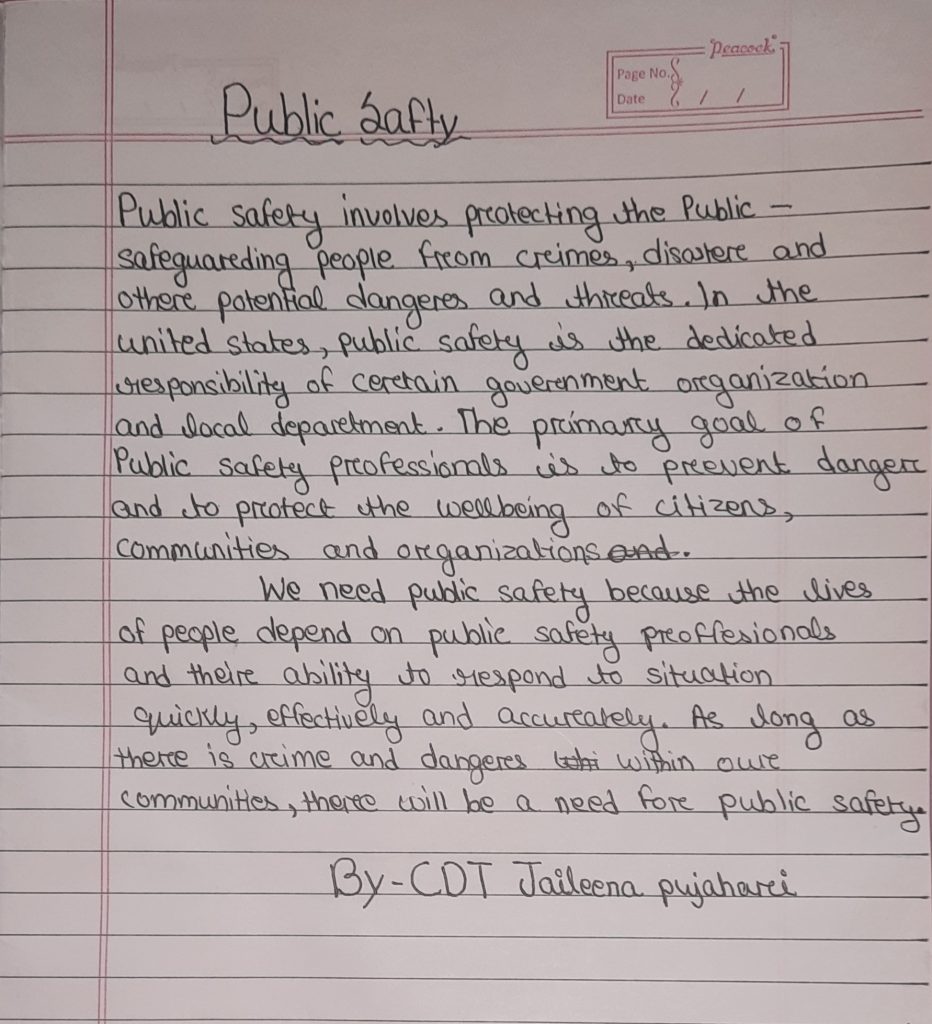 Peacock
Page No.
Date / /
Public Safty
Public safety involves protecting the Public –
safeguarding people from crimes, disastere and
other potential dangers and threats. In the
united states, public safety is the dedicated
responsibility of certain government organization
and local department. The primary goal of
Public safety professionals is to prevent danger
and to protect the wellbeing of citizens,
communities and organizations and.
We need public safety because the lives
of people depend on public safety proffesionals
and their ability to respond to situation
quickly, effectively and accurately. As long as
there is crime and dangers within our
communities, there will be a need for public safety.
By-CDT Jaileena pujahari